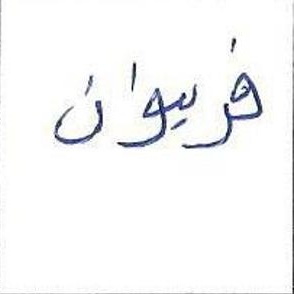 فریوان